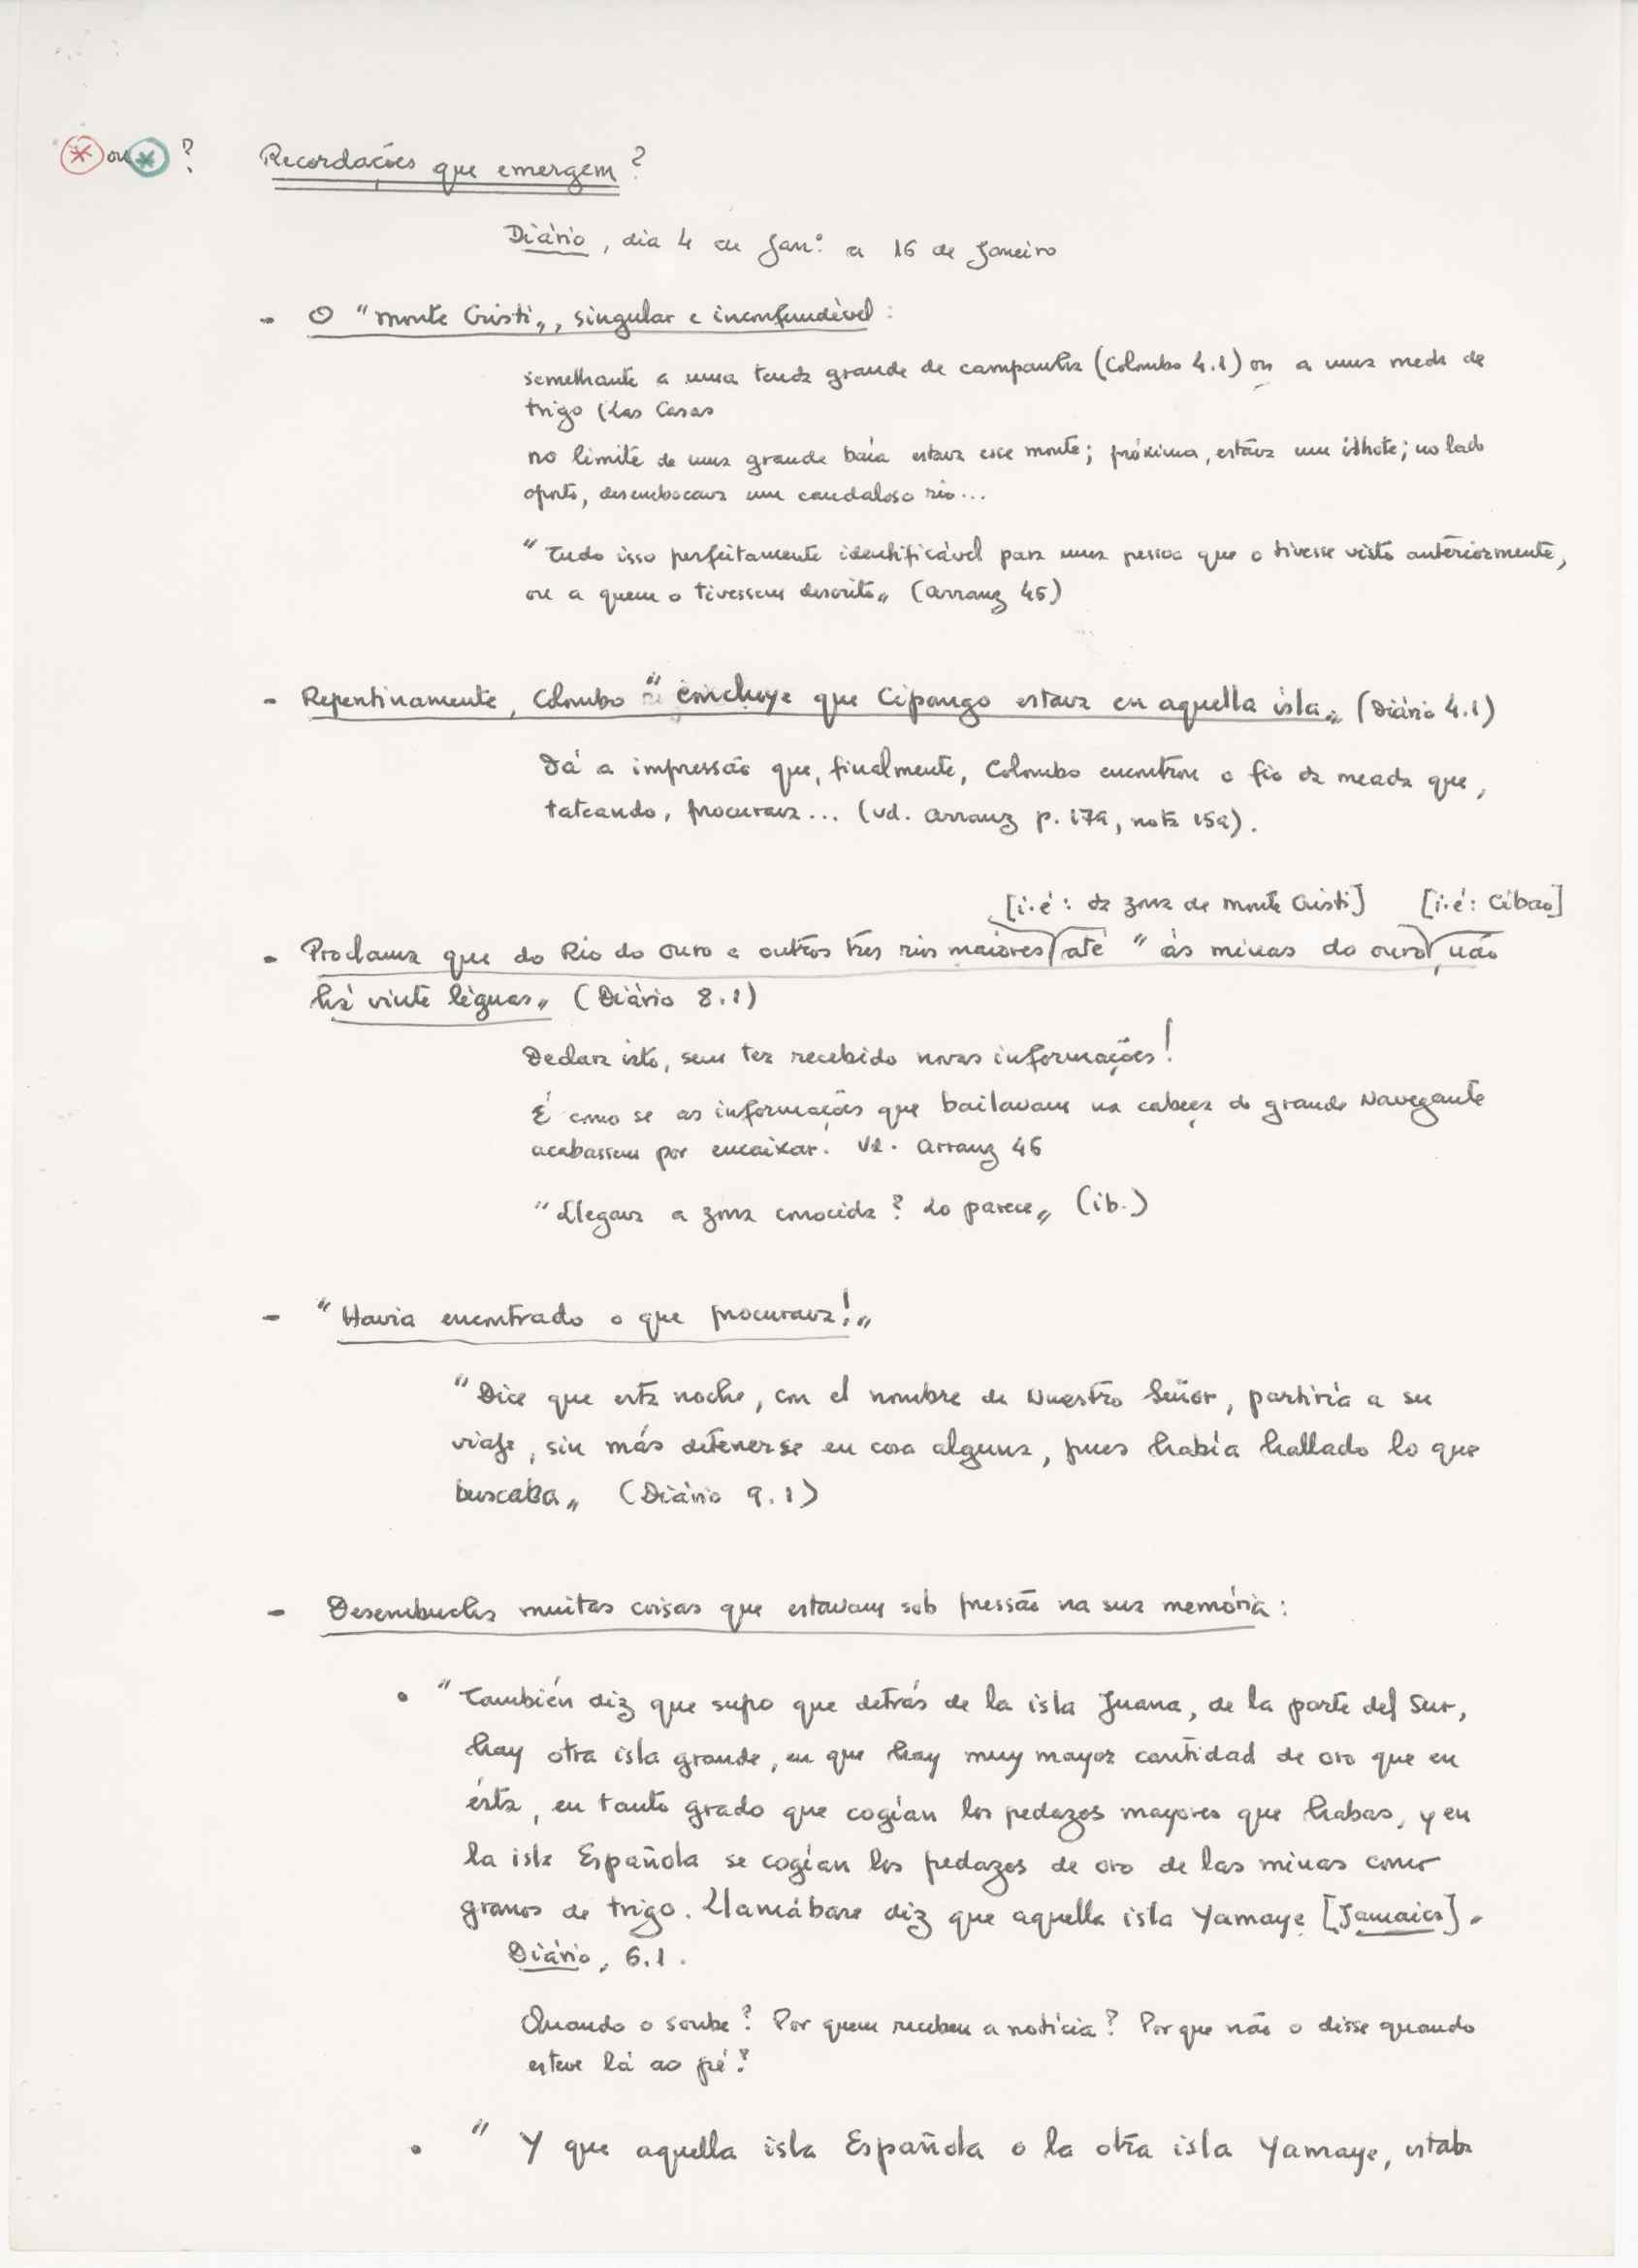 * ou * ? Recordações que emergem?
Diário, dia 4 de Janº a 16 de Janeiro
- O "Monte Cristi", singular e inconfundível:
semelhante a uma tenda grande de campanha (Colombo 4.1) ou a uma meda de
trigo (Las Casas
no limite de uma grande baía estava esse monte; próxima, estava um ilhote; no lado
oposto, desembocava um caudaloso rio...
"Tudo isso perfeitamente identificável para uma pessoa que o tivesse visto anteriormente,
ou a quem o tivessem descrito" (Arranz 45)
- Repentinamente, Colombo "concluye que Cipango estava en aquella isla" (Diário 4.1)
Dá a impressão que, finalmente, Colombo encontrou o fio da meada que,
tateando, procurava... (vd. Arranz p. 179, nota 159).
[i.é: da zona de Monte Cristi] [i.é: Cibao]
- Proclama que do Rio do Ouro e outros três rios maiores até "às minas do ouro, não
há vinte léguas" (Diário 8.1)
Declara isto, sem ter recebido novas informações!
É como se as informações que bailavam na cabeça do grande Navegante
acabassem por encaixar! Vd. Arranz 46
"Llegava a zona conocida? Lo parece" (ib.)
- "Havia encontrado o que procurava!"
"Dice que esta noche, con el nombre de Nuestro Señor, partiría a su
viaje, sin más detenerse en cosa alguna, pues había hallado lo que
buscaba" (Diário 9.1)
- Desembucha muitas coisas que estavam sob pressão na sua memória:
• "También diz que supo que detrás de la isla Juana, de la parte del Sur,
hay otra isla grande, en que hay muy mayor cantidad de oro que en
ésta, en tanto grado que cogían los pedazos mayores que habas, y en
la isla Española se cogían los pedazos de oro de las minas como
granos de trigo. Llamábase diz que aquella isla Yamaye [Jamaica].
Diário, 6.1.
Quando o soube? Por quem recebeu a notícia? Porque não o disse quando
esteve lá ao pé?
• "Y que aquella isla Española o la otra isla Yamaye, estaba